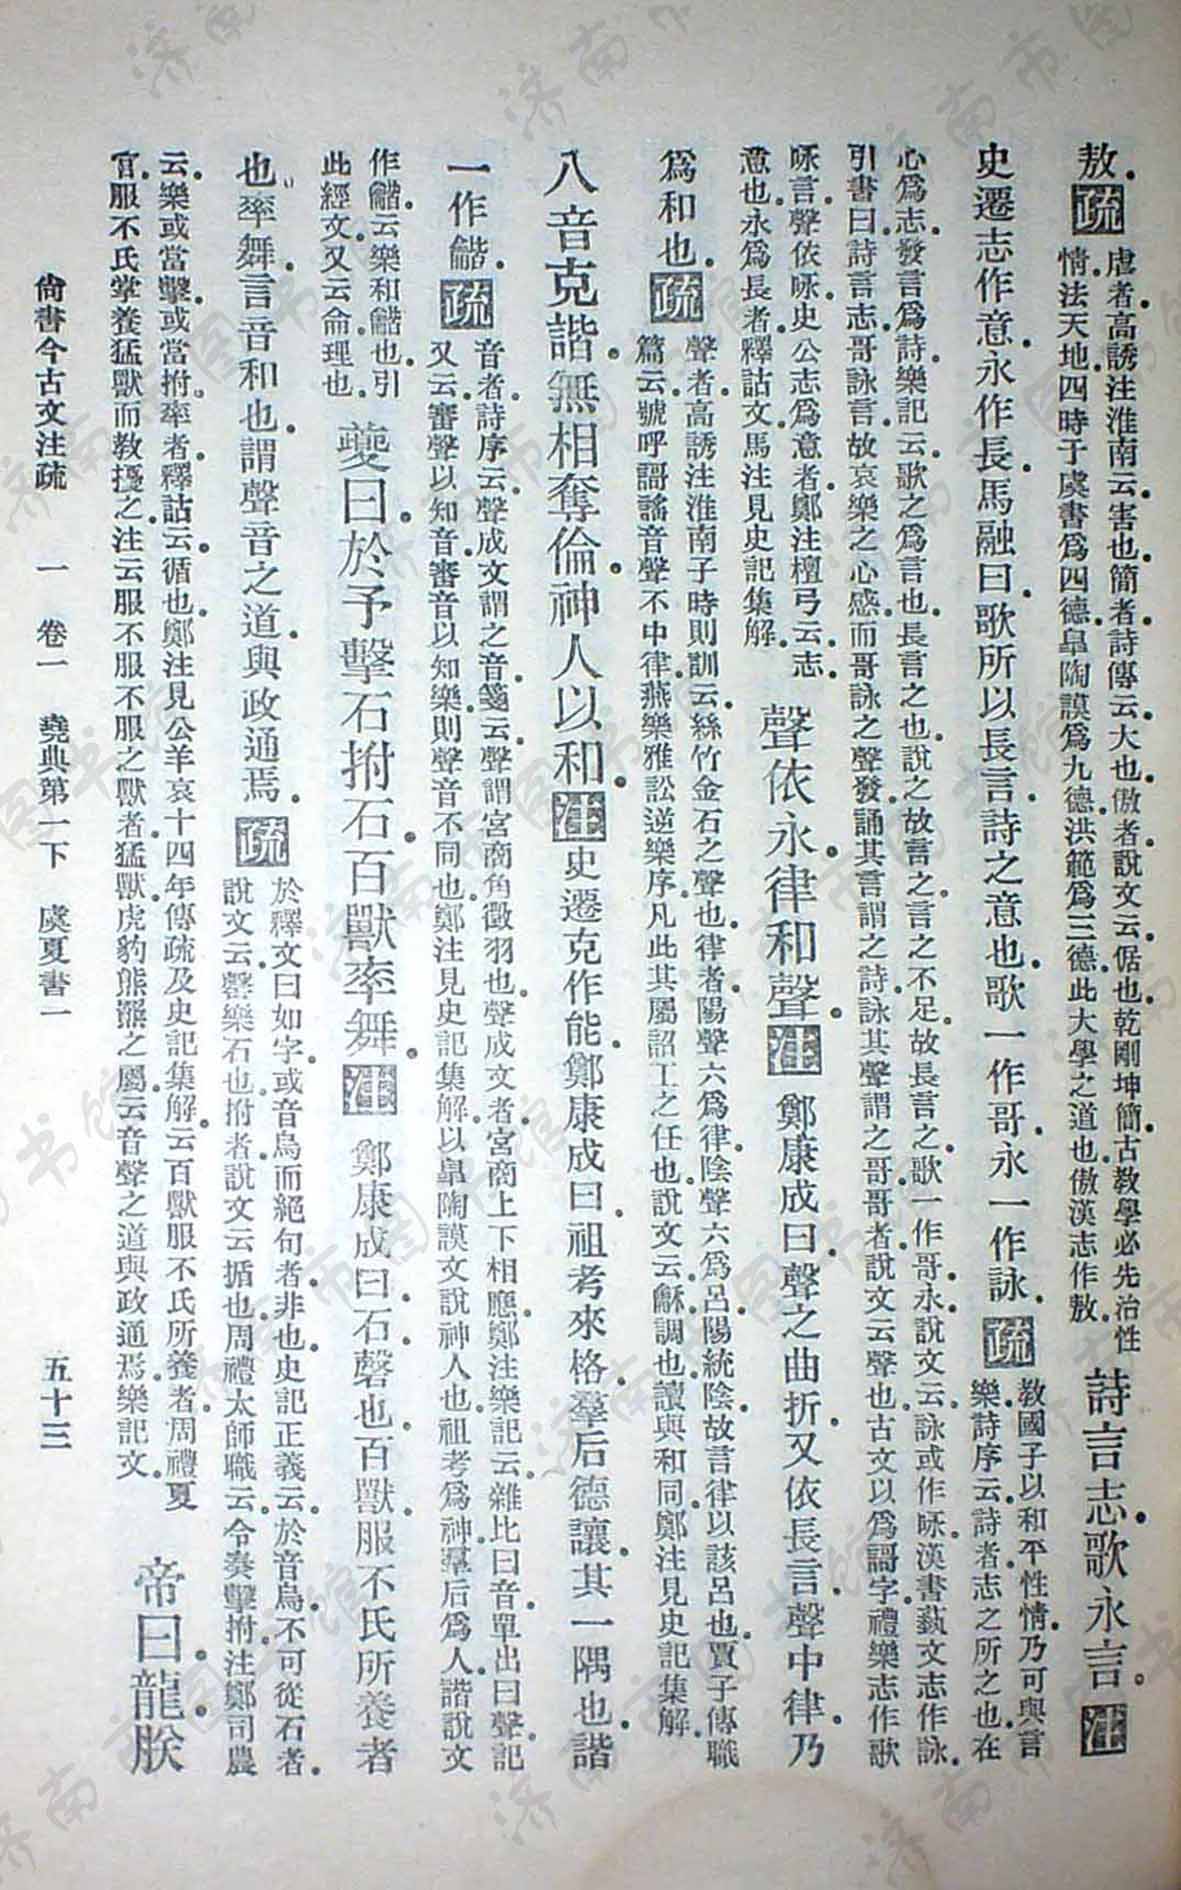 敖。疏虐者高誘注淮南云害也。簡者詩傳云大也。傲者說文云倨也。乾剛坤簡古教學必先治性
情。法天地四時于虞書爲四德。皋陶謨爲九德。洪範爲三德。此大學之道也。傲漢志作敖。詩言志。歌永言。注
史遷志作意。永作長。馬融曰。歌所以長言詩之意也。歌一作哥。永一作詠。疏教國子以和平性情。乃可與言
樂。詩序云。詩者志之所之也。在
心爲志。發言爲詩。樂記云。歌之爲言也。長言之也。說之故言之。言之不足。故長言之。歌一作哥。永說文云。詠或作咏。漢書藝文志作詠。
引書曰。詩言志。哥詠言。故哀樂之心感。而哥詠之聲發。誦其言謂之詩。詠其聲謂之哥。哥者。說文云聲也。古文以爲謌字。禮樂志作歌
咏言。聲依咏。史公志爲意者。鄭注檀弓云。志
意也。永爲長者。釋詁文。馬注見史記集解。聲依永。律和聲。注鄭康成曰。聲之曲折。又依長言。聲中律。乃
爲和也。疏聲者。高誘注淮南子時則訓云。絲竹金石之聲也。律者。陽聲六爲律。陰聲六爲呂。陽統陰。故言律以該呂也。賈子傅職
篇云。號呼謌謠音聲不中律。燕樂雅訟逆樂序。凡此其屬詔工之任也。說文云。龢調也。讀與和同。鄭注見史記集解。
八音克諧。無相奪倫。神人以和。注史遷克作能。鄭康成曰。祖考來格。羣后德讓。其一隅也。諧
一作龤。疏音者。詩序云。聲成文謂之音。箋云。聲謂宮商角徵羽也。聲成文者。宮商上下相應。鄭注樂記云。雜比曰音。單出曰聲。記
又云。審聲以知音。審音以知樂。則聲音不同也。鄭注見史記集解。以皋陶謨文說神人也。祖考爲神。羣后爲人。諧說文
作龤。云樂和龤也。引
此經文。又云。侖理也。夔曰。於予擊石拊石。百獸率舞。注鄭康成曰。石。磬也。百獸。服不氏所養者
也。率舞。言音和也。謂聲音之道。與政通焉。疏於釋文曰如字。或音烏而絕句者。非也。史記正義云。於音烏。不可從。石者。
說文云。磬樂石也。拊者。說文云揗也。周禮太師職云。令奏擊拊。注鄭司農
云。樂或當擊。或當拊。率者。釋詁云。循也。鄭注見公羊哀十四年傳疏及史記集解。云百獸服不氏所養者。周禮夏
官。服不氏掌養猛獸而教擾之。注云。服不服不服之獸者。猛獸虎豹熊羆之屬。云音聲之道與政通焉。樂記文。帝曰。龍。朕
尚書今古文注疏 一 卷一 堯典第一下 虞夏書一 五十三